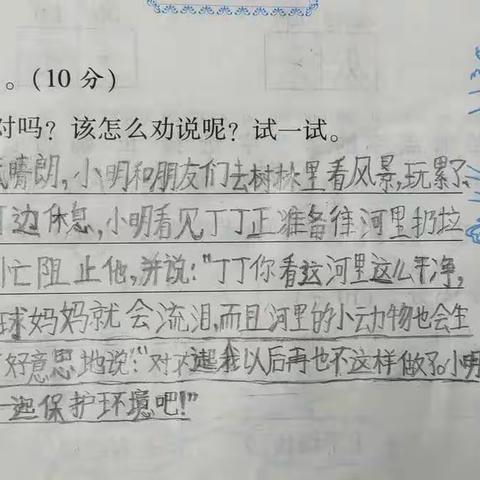 。(10分)
对吗？该怎么劝说呢？试一试。
晴朗，小明和朋友们去树林里看风景，玩累了
边休息，小明看见丁丁正准备往河里扔垃
忙阻止他，并说："丁丁你看这河里这么干净，
球妈妈就会流泪，而且河里的小动物也会生
好意思地说："对不起我以后再也不这样做了。小明
一起保护环境吧！"